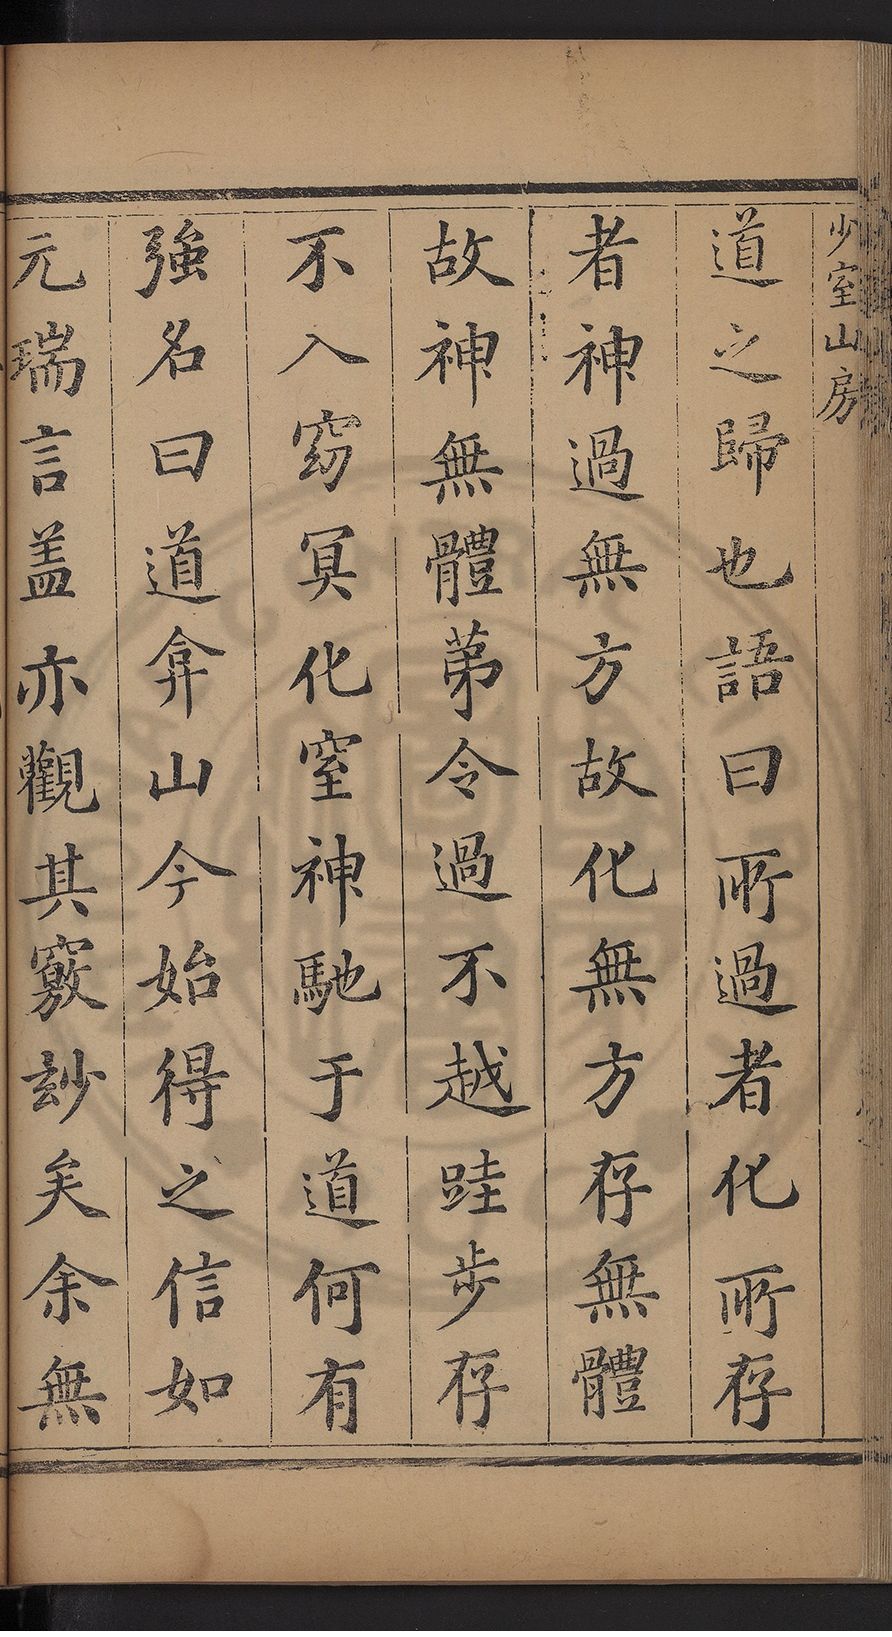 少室山房
道之歸也語曰所過者化所存
者神過無方故化無方存無體
故神無體苐令過不越跬步存
不入窈冥化窒神馳于道何有
強名曰道弇山今始得之信如
元瑞言盖亦觀其竅玅矣余無